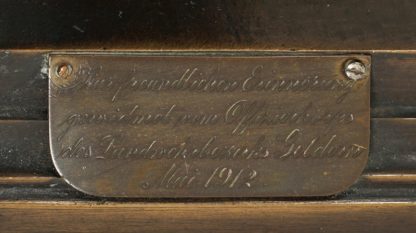 Zur freundlichen Erinnerung
gewidmet vom Offizierkorps
des Landwehrbezirks Geldern
Mai 1912